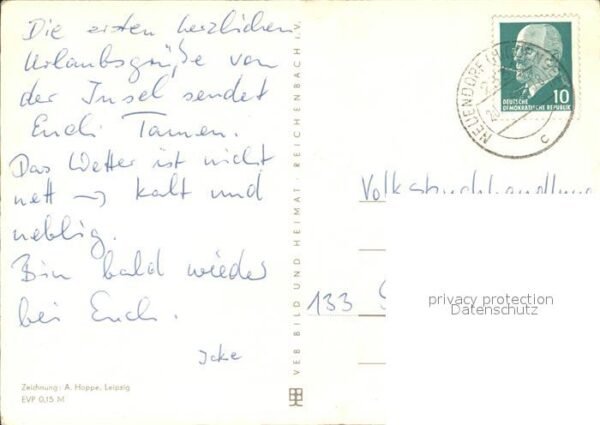 Die ersten herzlichen
Urlaubsgrüße von
der Insel sendet
Euch Tamen.
Das Wetter ist nicht
nett → kalt und
neblig.
Bin bald wieder
bei Euch.
Zeichnung: A. Hoppe, Leipzig
EVP 0,15 M
VEB BILD UND HEIMAT · REICHENBACH i.V.
NEUENDORF
c
DEUTSCHE
DEMOKRATISCHE REPUBLIK
10
Volksbuchhandlung
133
privacy protection
Datenschutz